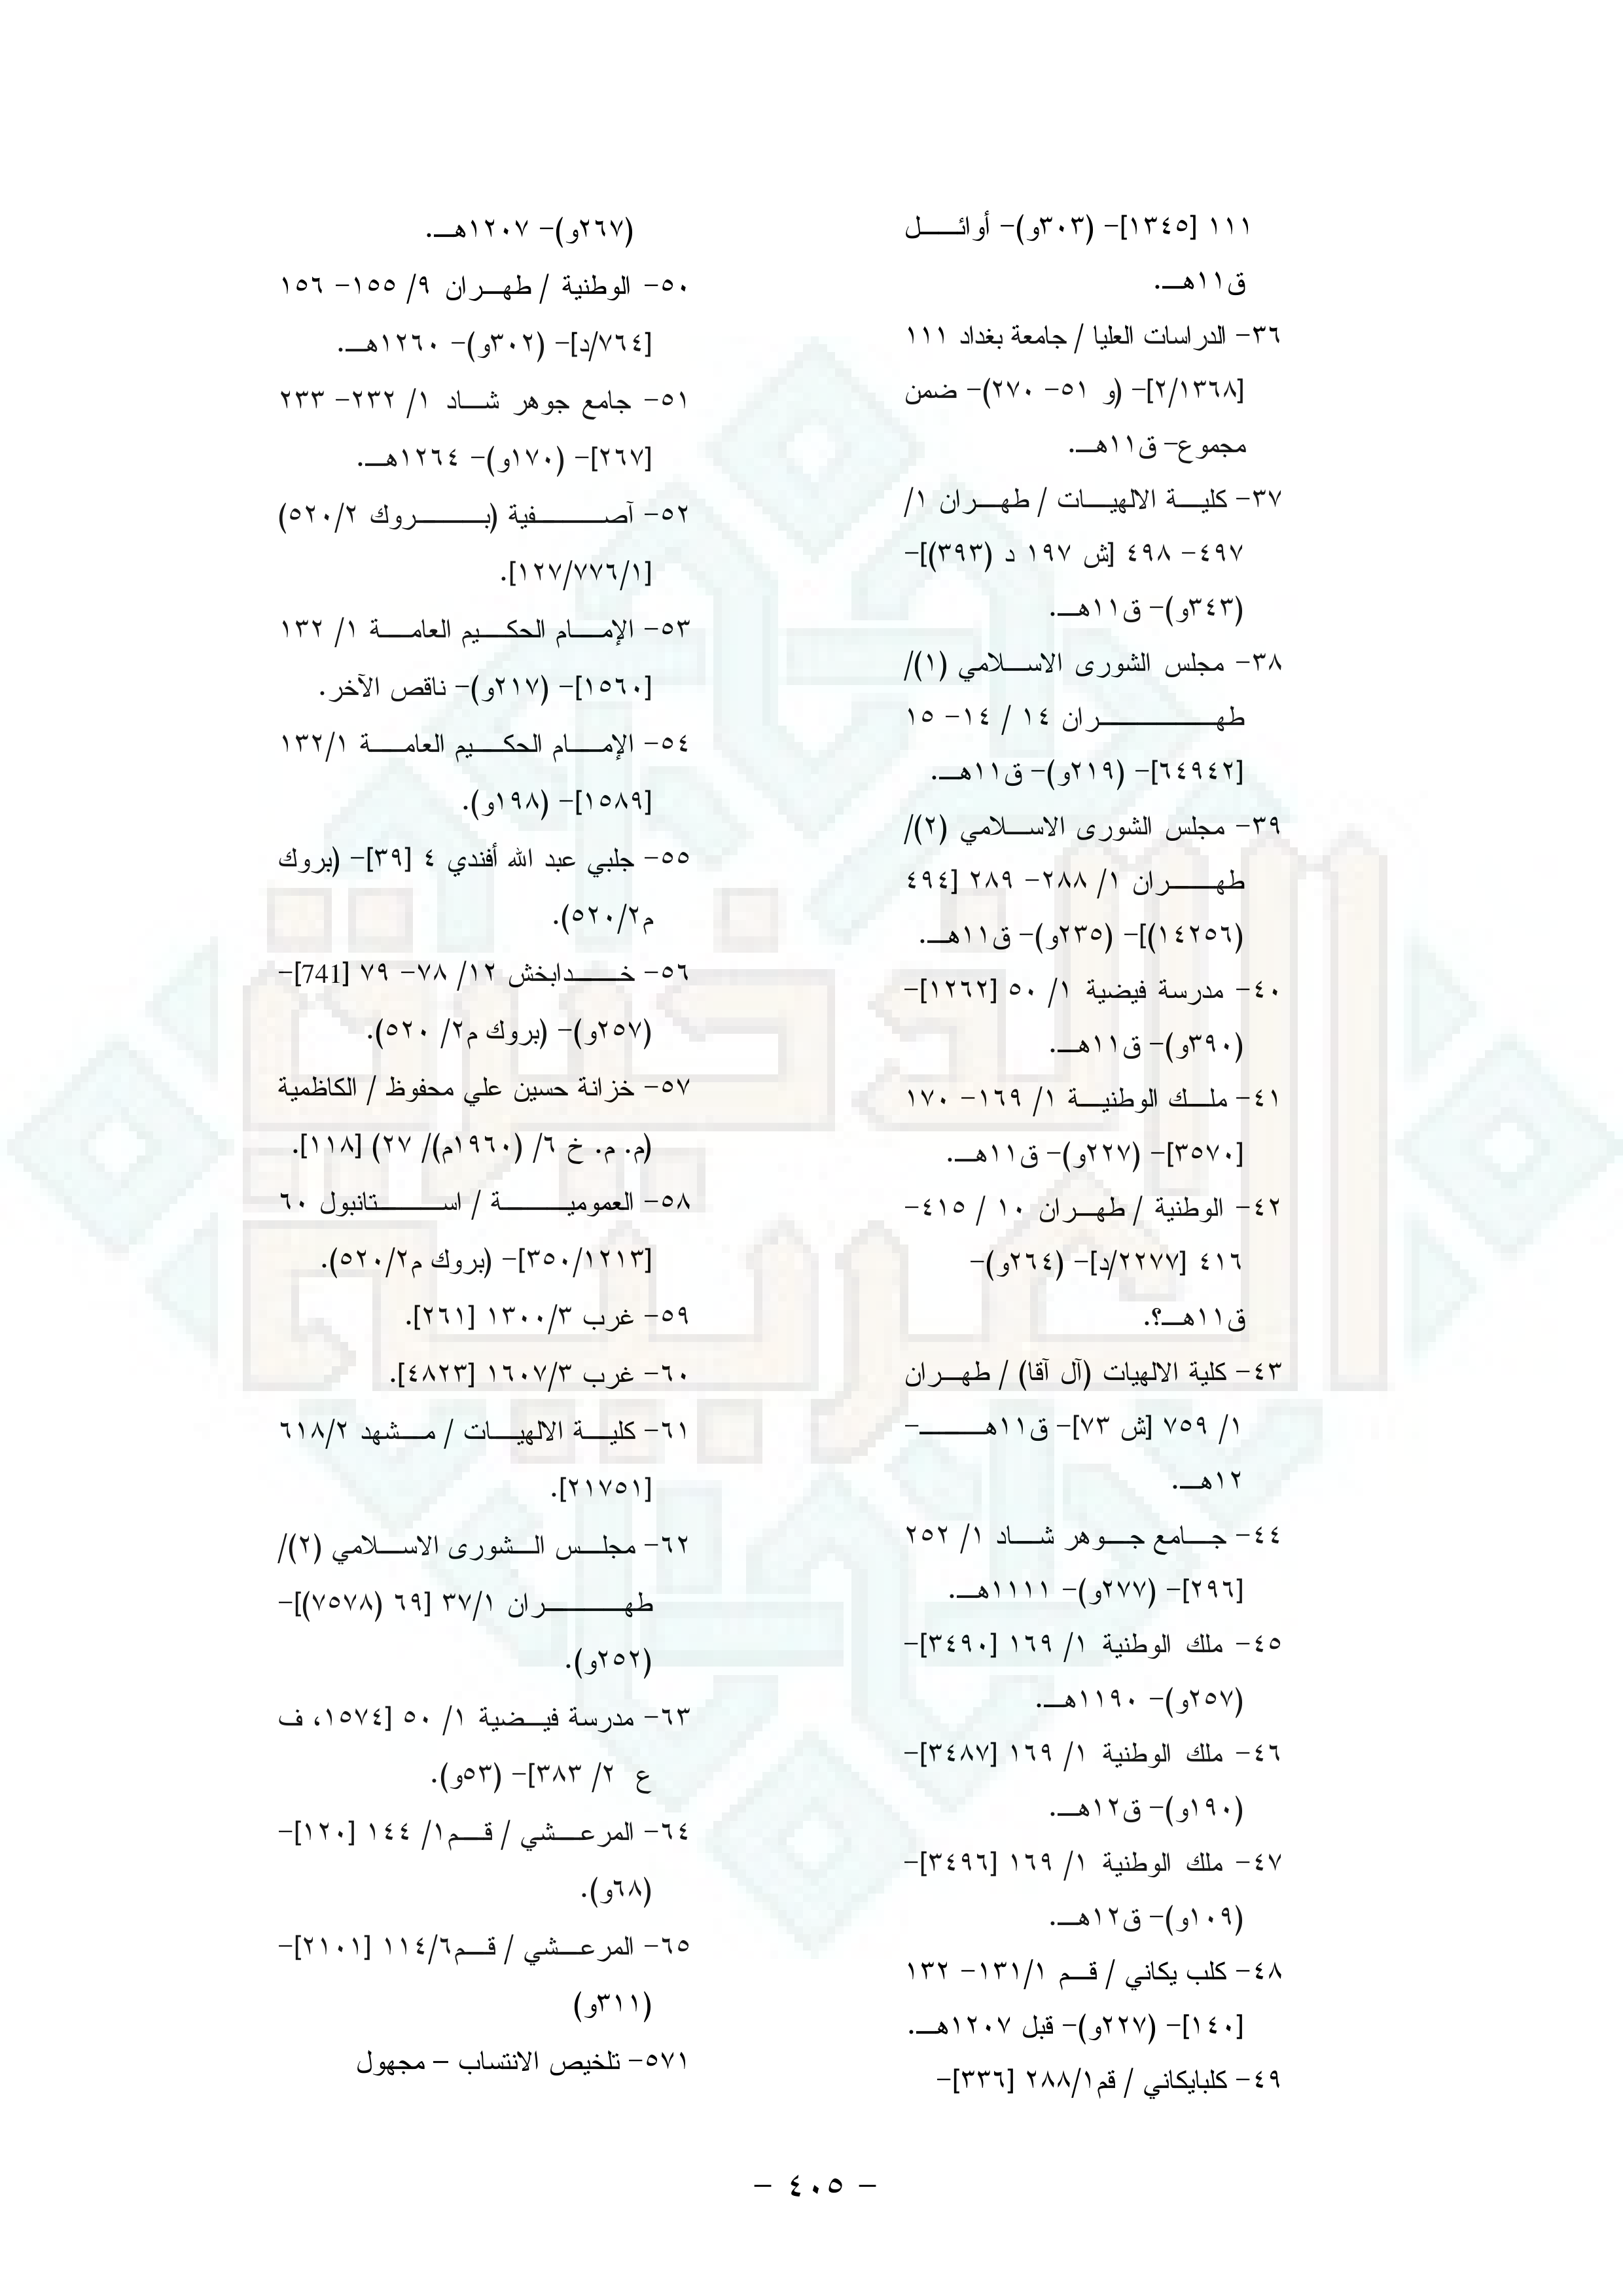 ١١١ [١٣٤٥]- (٣٠٣و)- أوائل
ق١١هـ.
٣٦- الدراسات العليا / جامعة بغداد ١١١
[٢/١٣٦٨]- (و ٥١- ٢٧٠)- ضمن
مجموع- ق١١هـ.
٣٧- كلية الالهيات / طهران ١/
٤٩٧- ٤٩٨ [ش ١٩٧ د (٣٩٣)]-
(٣٤٣و)- ق١١هـ.
٣٨- مجلس الشورى الاسلامي (١)/
طهران ١٤ / ١٤- ١٥
[٦٤٩٤٢]- (٢١٩و)- ق١١هـ.
٣٩- مجلس الشورى الاسلامي (٢)/
طهران ١/ ٢٨٨- ٢٨٩ [٤٩٤
(١٤٢٥٦)]- (٢٣٥و)- ق١١هـ.
٤٠- مدرسة فيضية ١/ ٥٠ [١٢٦٢]-
(٣٩٠و)- ق١١هـ.
٤١- ملك الوطنية ١/ ١٦٩- ١٧٠
[٣٥٧٠]- (٢٢٧و)- ق١١هـ.
٤٢- الوطنية / طهران ١٠ / ٤١٥-
٤١٦ [٢٢٧٧/د]- (٢٦٤و)-
ق١١هـ؟.
٤٣- كلية الالهيات (آل آقا) / طهران
١/ ٧٥٩ [ش ٧٣]- ق١١هـ-
١٢هـ.
٤٤- جامع جوهر شاد ١/ ٢٥٢
[٢٩٦]- (٢٧٧و)- ١١١١هـ.
٤٥- ملك الوطنية ١/ ١٦٩ [٣٤٩٠]-
(٢٥٧و)- ١١٩٠هـ.
٤٦- ملك الوطنية ١/ ١٦٩ [٣٤٨٧]-
(١٩٠و)- ق١٢هـ.
٤٧- ملك الوطنية ١/ ١٦٩ [٣٤٩٦]-
(١٠٩و)- ق١٢هـ.
٤٨- كلب يكاني / قم ١٣١/١- ١٣٢
[١٤٠]- (٢٢٧و)- قبل ١٢٠٧هـ.
٤٩- كلبايكاني / قم٢٨٨/١ [٣٣٦]-
(٢٦٧و)- ١٢٠٧هـ.
٥٠- الوطنية / طهران ٩/ ١٥٥- ١٥٦
[٧٦٤/د]- (٣٠٢و)- ١٢٦٠هـ.
٥١- جامع جوهر شاد ١/ ٢٣٢- ٢٣٣
[٢٦٧]- (١٧٠و)- ١٢٦٤هـ.
٥٢- آصفية (بروك ٥٢٠/٢)
[١٢٧/٧٧٦/١].
٥٣- الإمام الحكيم العامة ١/ ١٣٢
[١٥٦٠]- (٢١٧و)- ناقص الآخر.
٥٤- الإمام الحكيم العامة ١٣٢/١
[١٥٨٩]- (١٩٨و).
٥٥- جلبي عبد الله أفندي ٤ [٣٩]- (بروك
م٥٢٠/٢).
٥٦- خدابخش ١٢/ ٧٨- ٧٩ [741]-
(٢٥٧و)- (بروك م٢/ ٥٢٠).
٥٧- خزانة حسين علي محفوظ / الكاظمية
(م. م. خ ٦/ (١٩٦٠م)/ ٢٧) [١١٨].
٥٨- العمومية / استانبول ٦٠
[٣٥٠/١٢١٣]- (بروك م٥٢٠/٢).
٥٩- غرب ١٣٠٠/٣ [٢٦١].
٦٠- غرب ١٦٠٧/٣ [٤٨٢٣].
٦١- كلية الالهيات / مشهد ٦١٨/٢
[٢١٧٥١].
٦٢- مجلس الشورى الاسلامي (٢)/
طهران ٣٧/١ [٦٩ (٧٥٧٨)]-
(٢٥٢و).
٦٣- مدرسة فيضية ١/ ٥٠ [١٥٧٤، ف
ع ٢/ ٣٨٣]- (٥٣و).
٦٤- المرعشي / قم١/ ١٤٤ [١٢٠]-
(٦٨و).
٦٥- المرعشي / قم١١٤/٦ [٢١٠١]-
(٣١١و)
٥٧١- تلخيص الانتساب – مجهول
- ٤٠٥ -